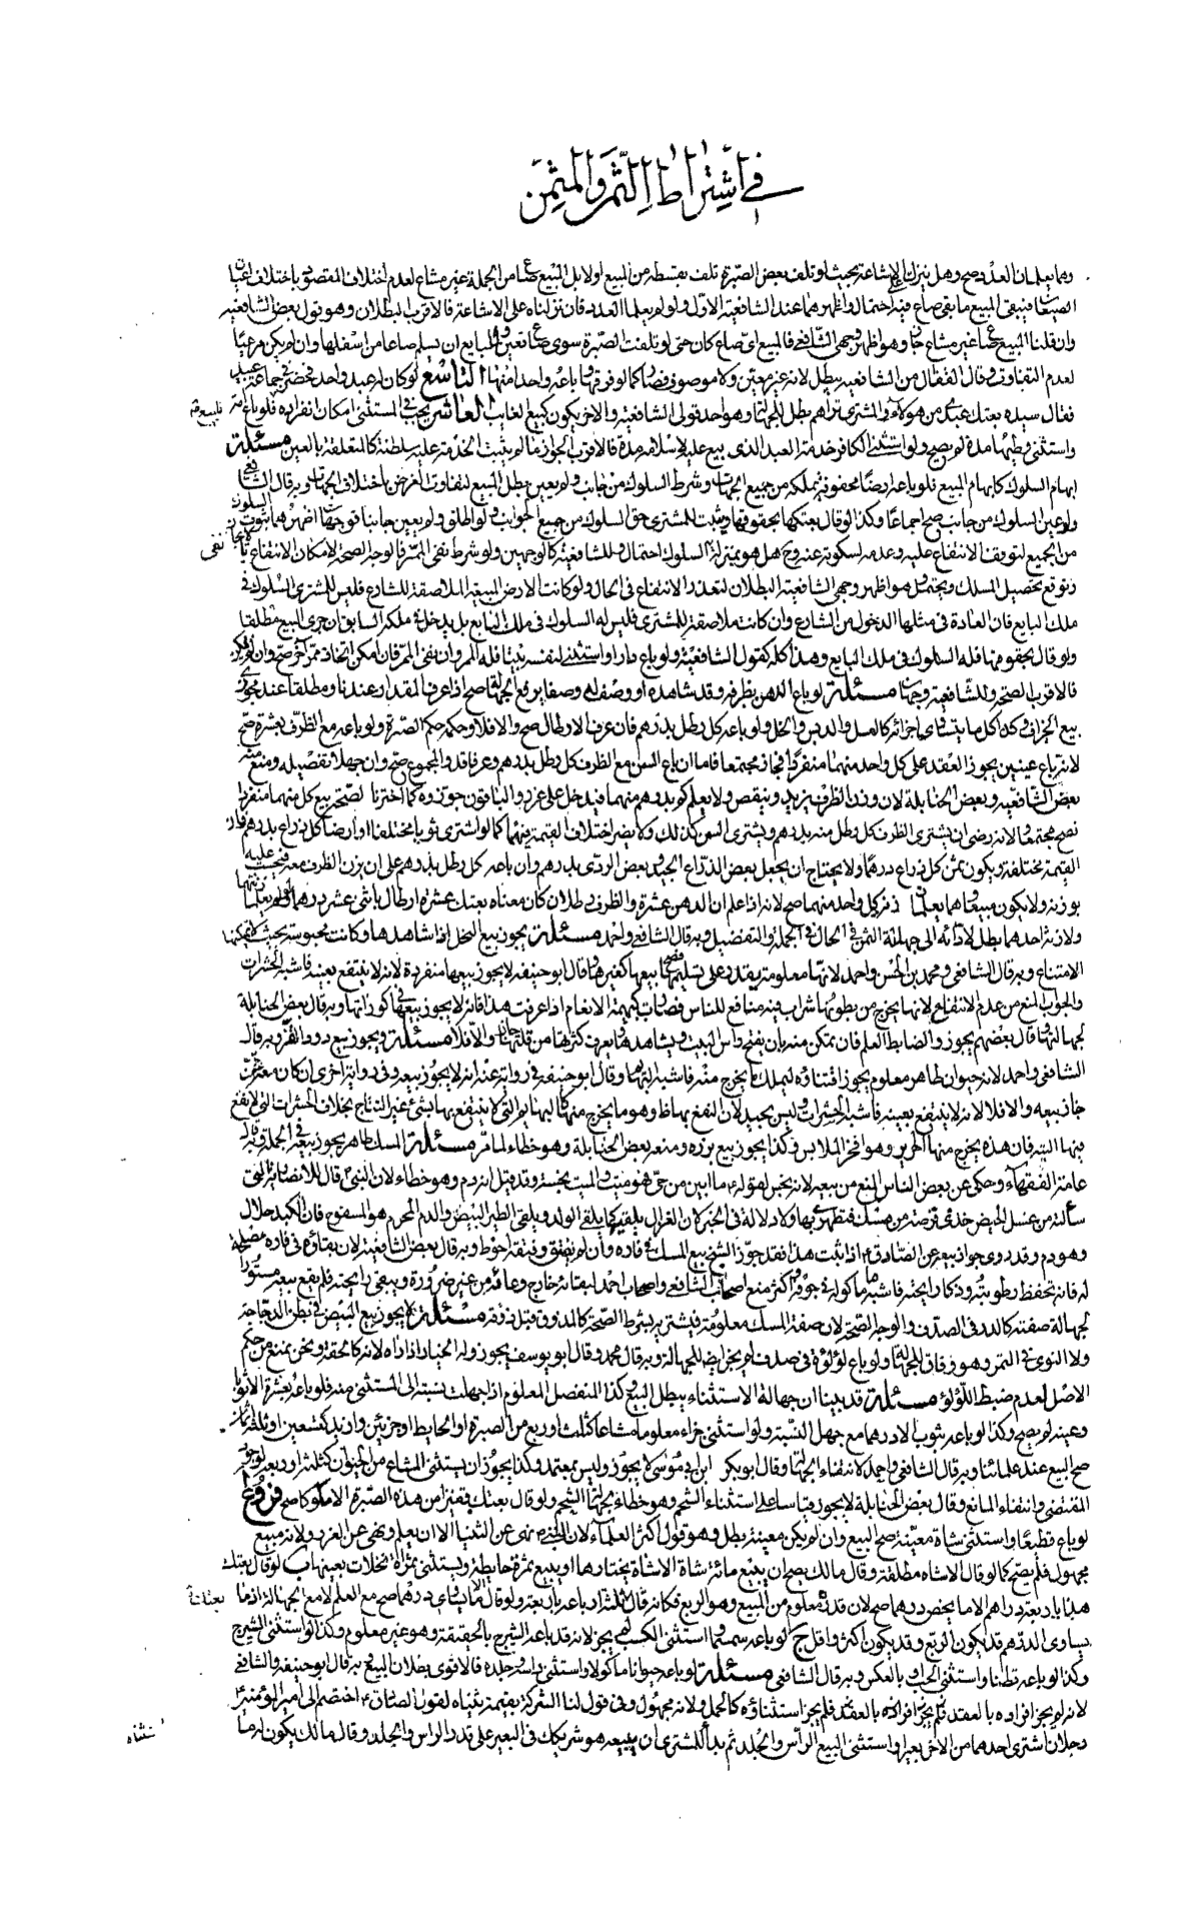 في اشتراط الثمن والمثمن
وهما يعلمان العدد صح وهل ينزل على الاشاعة بحيث لو تلف بعض الصبرة تلف بقسطه من المبيع اولا بل المبيع صاع من الجملة غير مشاع لعدم اختلاف المقصود باختلاف اعيان
الصيعان فيبقى المبيع ما بقي صاع فيه احتمال واظهرهما عند الشافعية الاول ولو لم يعلما العدد فان نزلناه على الاشاعة فالاقرب البطلان وهو قول بعض الشافعية
وان قلنا المبيع صاع غير مشاع جاز وهو اظهر وجهي الشافعي فالمبيع اي صاع كان حتى لو تلفت الصبرة سوى صاع تعين وللبايع ان يسلم صاعا من اسفلها وان لم يكن مرئيا
لعدم التفاوت وقال القفال من الشافعية يبطل لانه غير معين ولا موصوف فصار كما لو فرقها وباعه واحدا منها التاسع لو كان له عبد واحد فحضر في جماعة عبيد
فقال سيده بعتك عبدي من هؤلاء والمشتري يراهم بطل للجهالة وهو احد قولي الشافعية والاخر يكون كبيع الغايب العاشر يجب في المستثنى امكان انفراده فلو باع امة
واستثنى وطيها مدة لم يصح ولو استثنى الكافر خدمة العبد الذي بيع عليه لاسلامه مدة فالاقرب الجواز ما لم يثبت الخدمة عليه سلطنة كالمتعلقة بالعين مسئلة
ابهام السلوك كابهام المبيع فلو باعه ارضا محفوفة بملكه من جميع الجهات وشرط السلوك من جانب ولم يعين بطل المبيع لتفاوت الغرض باختلاف الجهات وبه قال الشافعي
ولو عين السلوك من جانب صح اجماعا وكذا لو قال بعتكها بحقوقها ويثبت للمشتري حق السلوك من جميع الجوانب ولو اطلق ولم يعين جانبا فوجهان اظهرهما ثبوت السلوك
من الجميع لتوقف الانتفاع عليه وعدمه لسكوته عنه وح هل هو بمنزلة نفي السلوك احتمال وللشافعية كالوجهين ولو شرط نفي الممر فالوجه الصحة لامكان الانتفاع بالايجار
وتوقع تحصيل المسلك ويحتمل وهو اظهر وجهي الشافعية البطلان لتعذر الانتفاع في الحال ولو كانت الارض المبيعة الملاصقة للشارع فليس للمشتري السلوك في
ملك البايع فان العادة في مثلها الدخول من الشارع وان كانت ملاصقة للمشتري فليس له السلوك في ملك البايع بل يدخل من ملكه السابق ان جرى البيع مطلقا
ولو قال بحقوقها فله السلوك في ملك البايع وهذا كله كقول الشافعية ولو باع دارا واستثنى لنفسه بيتا فله الممر وان نفى الممر فان امكن اتخاذ ممر آخر صح وان لم يمكن
فالاقرب الصحة وللشافعية وجهان مسئلة لو باع الدهن بظرفه وقد شاهده او وصف له وصفا يرفع الجهالة صح اذا عرف المقدار عندنا ومطلقا عند مجوزي
بيع الجزاف وكذا كل ما يتساوى اجزائه كالعسل والدبس والخل ولو باعه كل رطل بدرهم فان عرف الارطال صح والا فلا وحكمه حكم الصبرة ولو باعه مع الظرف بعشرة صح
لانه باع عينين يجوز العقد على كل واحد منهما منفردا فجاز مجتمعا فاما ان باع السمن مع الظرف كل رطل بدرهم وعرفا قدر المجموع صح وان جهلا تفصيله ومنع منه
بعض الشافعية وبعض الحنابلة لان وزن الظرف يزيد وينقص ولا يعلم كم بدرهم منهما فيدخل على غرر والباقون جوزوه كما اخترنا لصحة بيع كل منهما منفردا
فصح مجتمعا ولانه رضي ان يشتري الظرف كل رطل منه بدرهم ويشتري السمن كذلك ولا يضر اختلاف القيمة بينهما كما لو اشترى ثوبا مختلفا او ارضا كل ذراع بدرهم فان
القيمة مختلفة ويكون ثمن كل ذراع درهما ولا يحتاج ان يجعل بعض الذراع الجيد وبعض الردي بدرهم وان باعه كل رطل بدرهم على ان يزن الظرف معه فيحسب عليه
بوزنه ولا يكون مبيعا وهما يعلمان زنة كل واحد منهما صح لانه اذا علم ان الدهن عشرة والظرف رطلان كان معناه بعتك عشرة ارطال باثنى عشر درهما ولو لم يعلما زنتهما
ولا زنة احدهما بطل لادائه الى جهالة الثمن في الحال في الجملة والتفصيل وبه قال الشافعي واحمد مسئلة يجوز بيع النحل اذا شاهدها وكانت محبوسة بحيث لا يمكنها
الامتناع وبه قال الشافعي ومحمد بن الحسن واحمد لانها معلومة يقدر على تسليمها فصح بيعها كغيرها وقال ابو حنيفة لا يجوز بيعها منفردة لانه لا ينتفع بعينه فاشبه الحشرات
والجواب المنع من عدم الانتفاع لانها يخرج من بطونها شراب فيه منافع للناس فصارت كبهيمة الانعام اذا عرفت هذا فانه لا يجوز بيعها في كوراتها وبه قال بعض الحنابلة
لجهالتها وقال بعضهم يجوز والضابط العلم فان تمكن منه بان يفتح راس البيت ويشاهدها ويعرف كثرتها من قلتها جاز والا فلا مسئلة ويجوز بيع دود القز وبه قال
الشافعي واحمد لانه حيوان طاهر معلوم يجوز اقتناؤه ليملك ما يخرج منه فاشبه البهايم وقال ابو حنيفة في رواية عنه انه لا يجوز بيعه وفي رواية اخرى ان كان معه قز
جاز بيعه والا فلا لانه لا ينتفع بعينه فاشبه الحشرات وليس بجيد لان النفع بها ظاهر وهو ما يخرج منها كالبهايم التي لا ينتفع بها بشئ غير النتاج بخلاف الحشرات التي لا نفع
فيها البتة فان هذه يخرج منها الحرير وهو افخر الملابس وكذا يجوز بيع بزره ومنعه بعض الحنابلة وهو خطاء لما مر مسئلة المسك طاهر يجوز بيعه في الجملة وبه قال
عامة الفقهاء وحكي عن بعض الناس المنع من بيعه لانه نجس لقوله ع ما ابين من حي فهو ميت والميت نجس وقد قيل انه دم وهو خطاء لان النبي ع قال للانصارية التي
سألته من غسل الحيض خذي فرصة من مسك فتطهري بها ولا دلالة في الخبر لان الغزال يلقيه كما يلقي الولد ويلقي الطير البيض والدم المحرم هو المسفوح فان الكبد حلال
وهو دم وقد روى جواز بيعه عن الصادق ع اذا ثبت هذا فقد جوز الشيخ بيع المسك في فاره وان لم يفتق وفتقه احوط وبه قال بعض الشافعية لان بقاؤه في فاره مصلحة
له فانه تحفظ رطوبته وذكا رايحته فاشبه ما ماكوله في جوفه واكثر منع اصحاب الشافعي واصحاب احمد لبقائه خارج وعائه من غير ضرورة ويبقى رايحته فلم يقع بيعه مستورا
لجهالة صفته كالدر في الصدف والوجه الصحة لان صفة المسك معلومة فيشتريه بشرط الصحة كالمذوق قبل ذوقه مسئلة لا يجوز بيع البيض في بطن الدجاجة
ولا النوى في التمر وهو وفاق للجهالة ولو باع لؤلؤة في صدف لم يجز ايضا للجهالة وبه قال محمد وقال ابو يوسف يجوز وله الخيار اذا راه لانه كالحقة ونحن نمنع من حكم
الاصل لعدم ضبط اللؤلؤ مسئلة قد بينا ان جهالة الاستثناء يبطل البيع وكذا المنفصل المعلوم اذا جهلت نسبته الى المستثنى منه فلو باعه بعشرة الا ثوبا
وعينه لم يصح وكذا لو باعه بثوب الا درهما مع جهل النسبة ولو استثنى جزاء معلوما مشاعا كثلث او ربع من الصبرة او الحايط او جزئين وازيد كتسعين او ثلثة اثمان
صح البيع عند علمائنا وبه قال الشافعي واحمد لانتفاء الجهالة وقال ابو بكر ابن ابي موسى لا يجوز وليس بمعتمد وكذا يجوز ان يستثنى المشاع من الحيوان كثلثه او ربعه لوجود
المقتضى وانتفاء المانع وقال بعض الحنابلة لا يجوز قياسا على استثناء الشحم وهو خطاء لجهالة الشحم ولو قال بعتك قفيزا من هذه الصبرة الا مكوكا صح فروع ا
لو باع قطيعا واستثنى شاة معينة صح البيع وان لم يكن معينة بطل وهو قول اكثر العلماء لان النبي ص نهى عن الثنيا الا ان يعلم ونهى عن الغرر ولانه مبيع
مجهول فلم يصح كما لو قال الا شاه مطلقة وقال مالك يصح ان يبيع مائة شاة الا شاة يختارها او يبيع ثمرة حايطه ويستثنى ثمرة نخلات بعينها ب لو قال بعتك
هذا باربعة دراهم الا ما يخص درهما صح لان قدره معلوم من المبيع وهو الربع فكانه قال بعتك ثلثة ارباعه باربعة ولو قال الا ما يساوي درهما صح مع العلم لا مع الجهالة اذ ما
يساوي الدرهم قد يكون الربع وقد يكون اكثر واقل ج لو باعه سمسما واستثنى الكسب لم يجز لانه قد باعه الشيرج بالحقيقة وهو غير معلوم وكذا لو استثنى الشيرج
وكذا لو باعه قطنا واستثنى الحب او بالعكس وبه قال الشافعي مسئلة لو باعه حيوانا ماكولا واستثنى راسه وجلده فالاقوى بطلان البيع وبه قال ابو حنيفة والشافعي
لانه لم يجز افراده بالعقد فلم يجز افراده بالعقد فلم يجز استثناؤه كالحمل ولانه مجهول وفي قول لنا الشركة بقيمة ثنياه لقول الصادق ع اختصم الى امير المؤمنين
رجلان اشترى احدهما من الاخر بعيرا واستثنى البيع الراس والجلد ثم بدا للمشتري ان يبيعه هو شريكك في البعير على قدر الراس والجلد وقال مالك يكون له ما
نفى